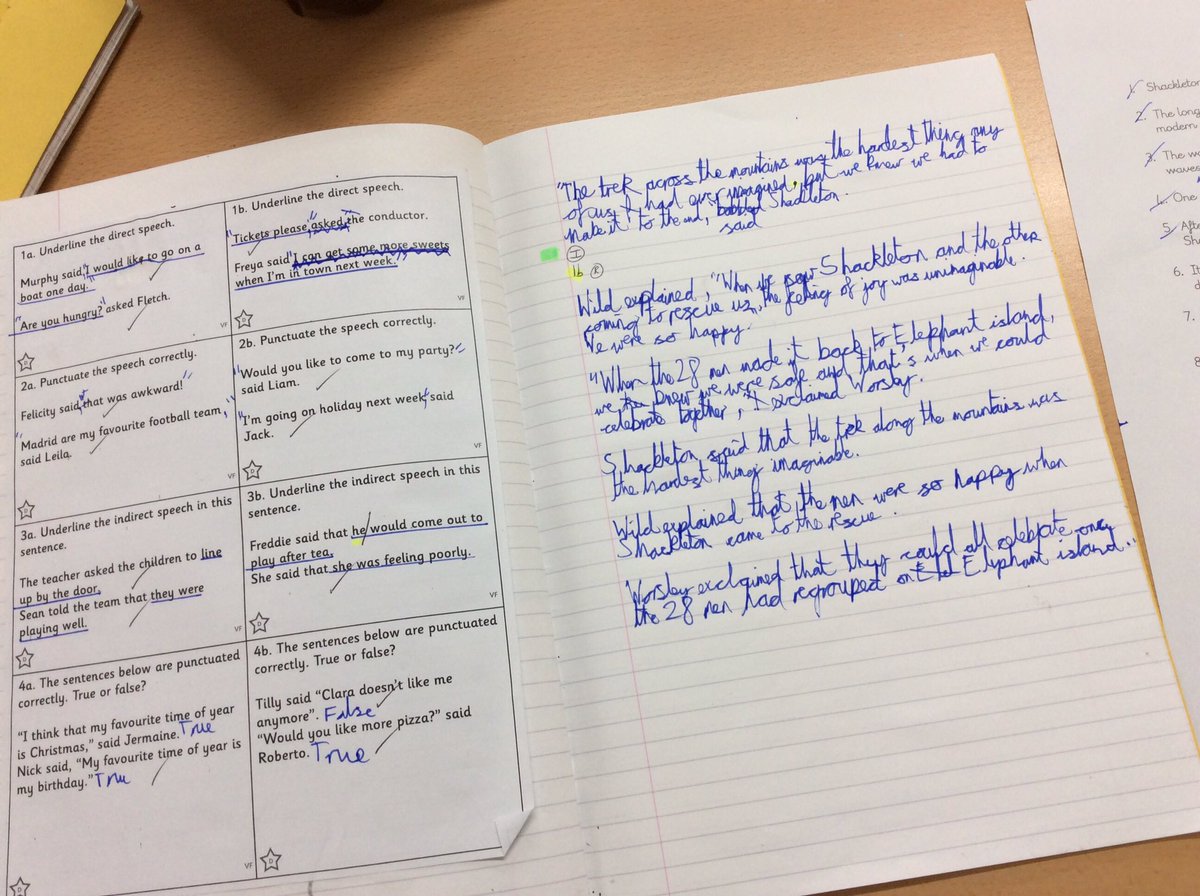 1a. Underline the direct speech.
Murphy said "I would like to go on a
boat one day."
"Are you hungry?" asked Fletch.
VF
D
1b. Underline the direct speech.
"Tickets please," asked the conductor.
Freya said "I can get some more sweets
when I'm in town next week."
VF
D
2a. Punctuate the speech correctly.
Felicity said, "that was awkward!"
"Madrid are my favourite football team,"
said Leila.
VF
D
2b. Punctuate the speech correctly.
"Would you like to come to my party?"
said Liam.
"I'm going on holiday next week," said
Jack.
VF
D
3a. Underline the indirect speech in this
sentence.
The teacher asked the children to line
up by the door.
Sean told the team that they were
playing well.
VF
D
3b. Underline the indirect speech in this
sentence.
Freddie said that he would come out to
play after tea.
She said that she was feeling poorly.
VF
D
4a. The sentences below are punctuated
correctly. True or false?
"I think that my favourite time of year
is Christmas," said Jermaine. True
Nick said, "My favourite time of year is
my birthday." True
VF
D
4b. The sentences below are punctuated
correctly. True or false?
Tilly said "Clara doesn't like me
anymore". False
"Would you like more pizza?" said
Roberto. True
VF
D
"The trek across the mountains was the hardest thing any
of us had ever imagined, but we knew we had to
make it to the end, Shackleton.
said
I
1b R
Wild explained, "When we saw Shackleton and the other
coming to rescue us, the feeling of joy was unimaginable.
We were so happy.
"When the 28 men made it back to Elephant island,
we knew we were safe and that's when we could
celebrate together," exclaimed Worsley.
Shackleton said that the trek along the mountains was
the hardest thing imaginable.
Wild explained that the men were so happy when
Shackleton came to the rescue.
Worsley exclaimed that they could all celebrate once
the 28 men had regrouped on Elephant island.
1. Shackleton
2. The long
modern
3. The
waves
4. One
5. Afte
Sh
6. It
d
7.
8